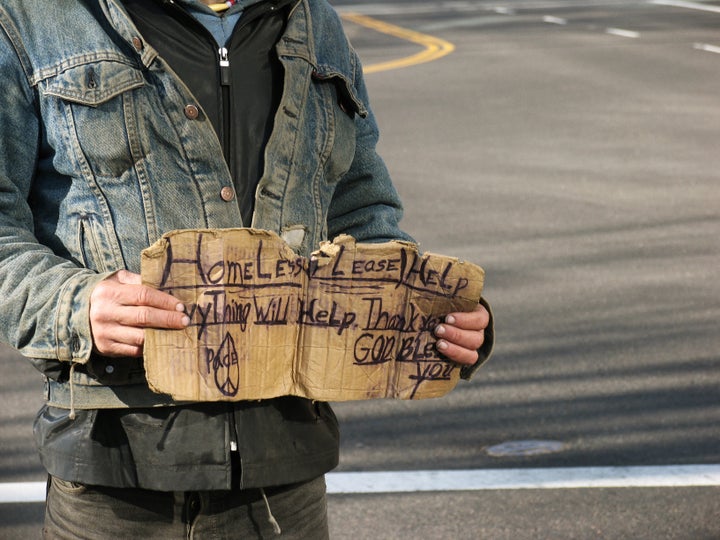 HomeLess PLease HeLp
AnyThing WiLL HeLp. Thank you
Peace GOD BLess
you